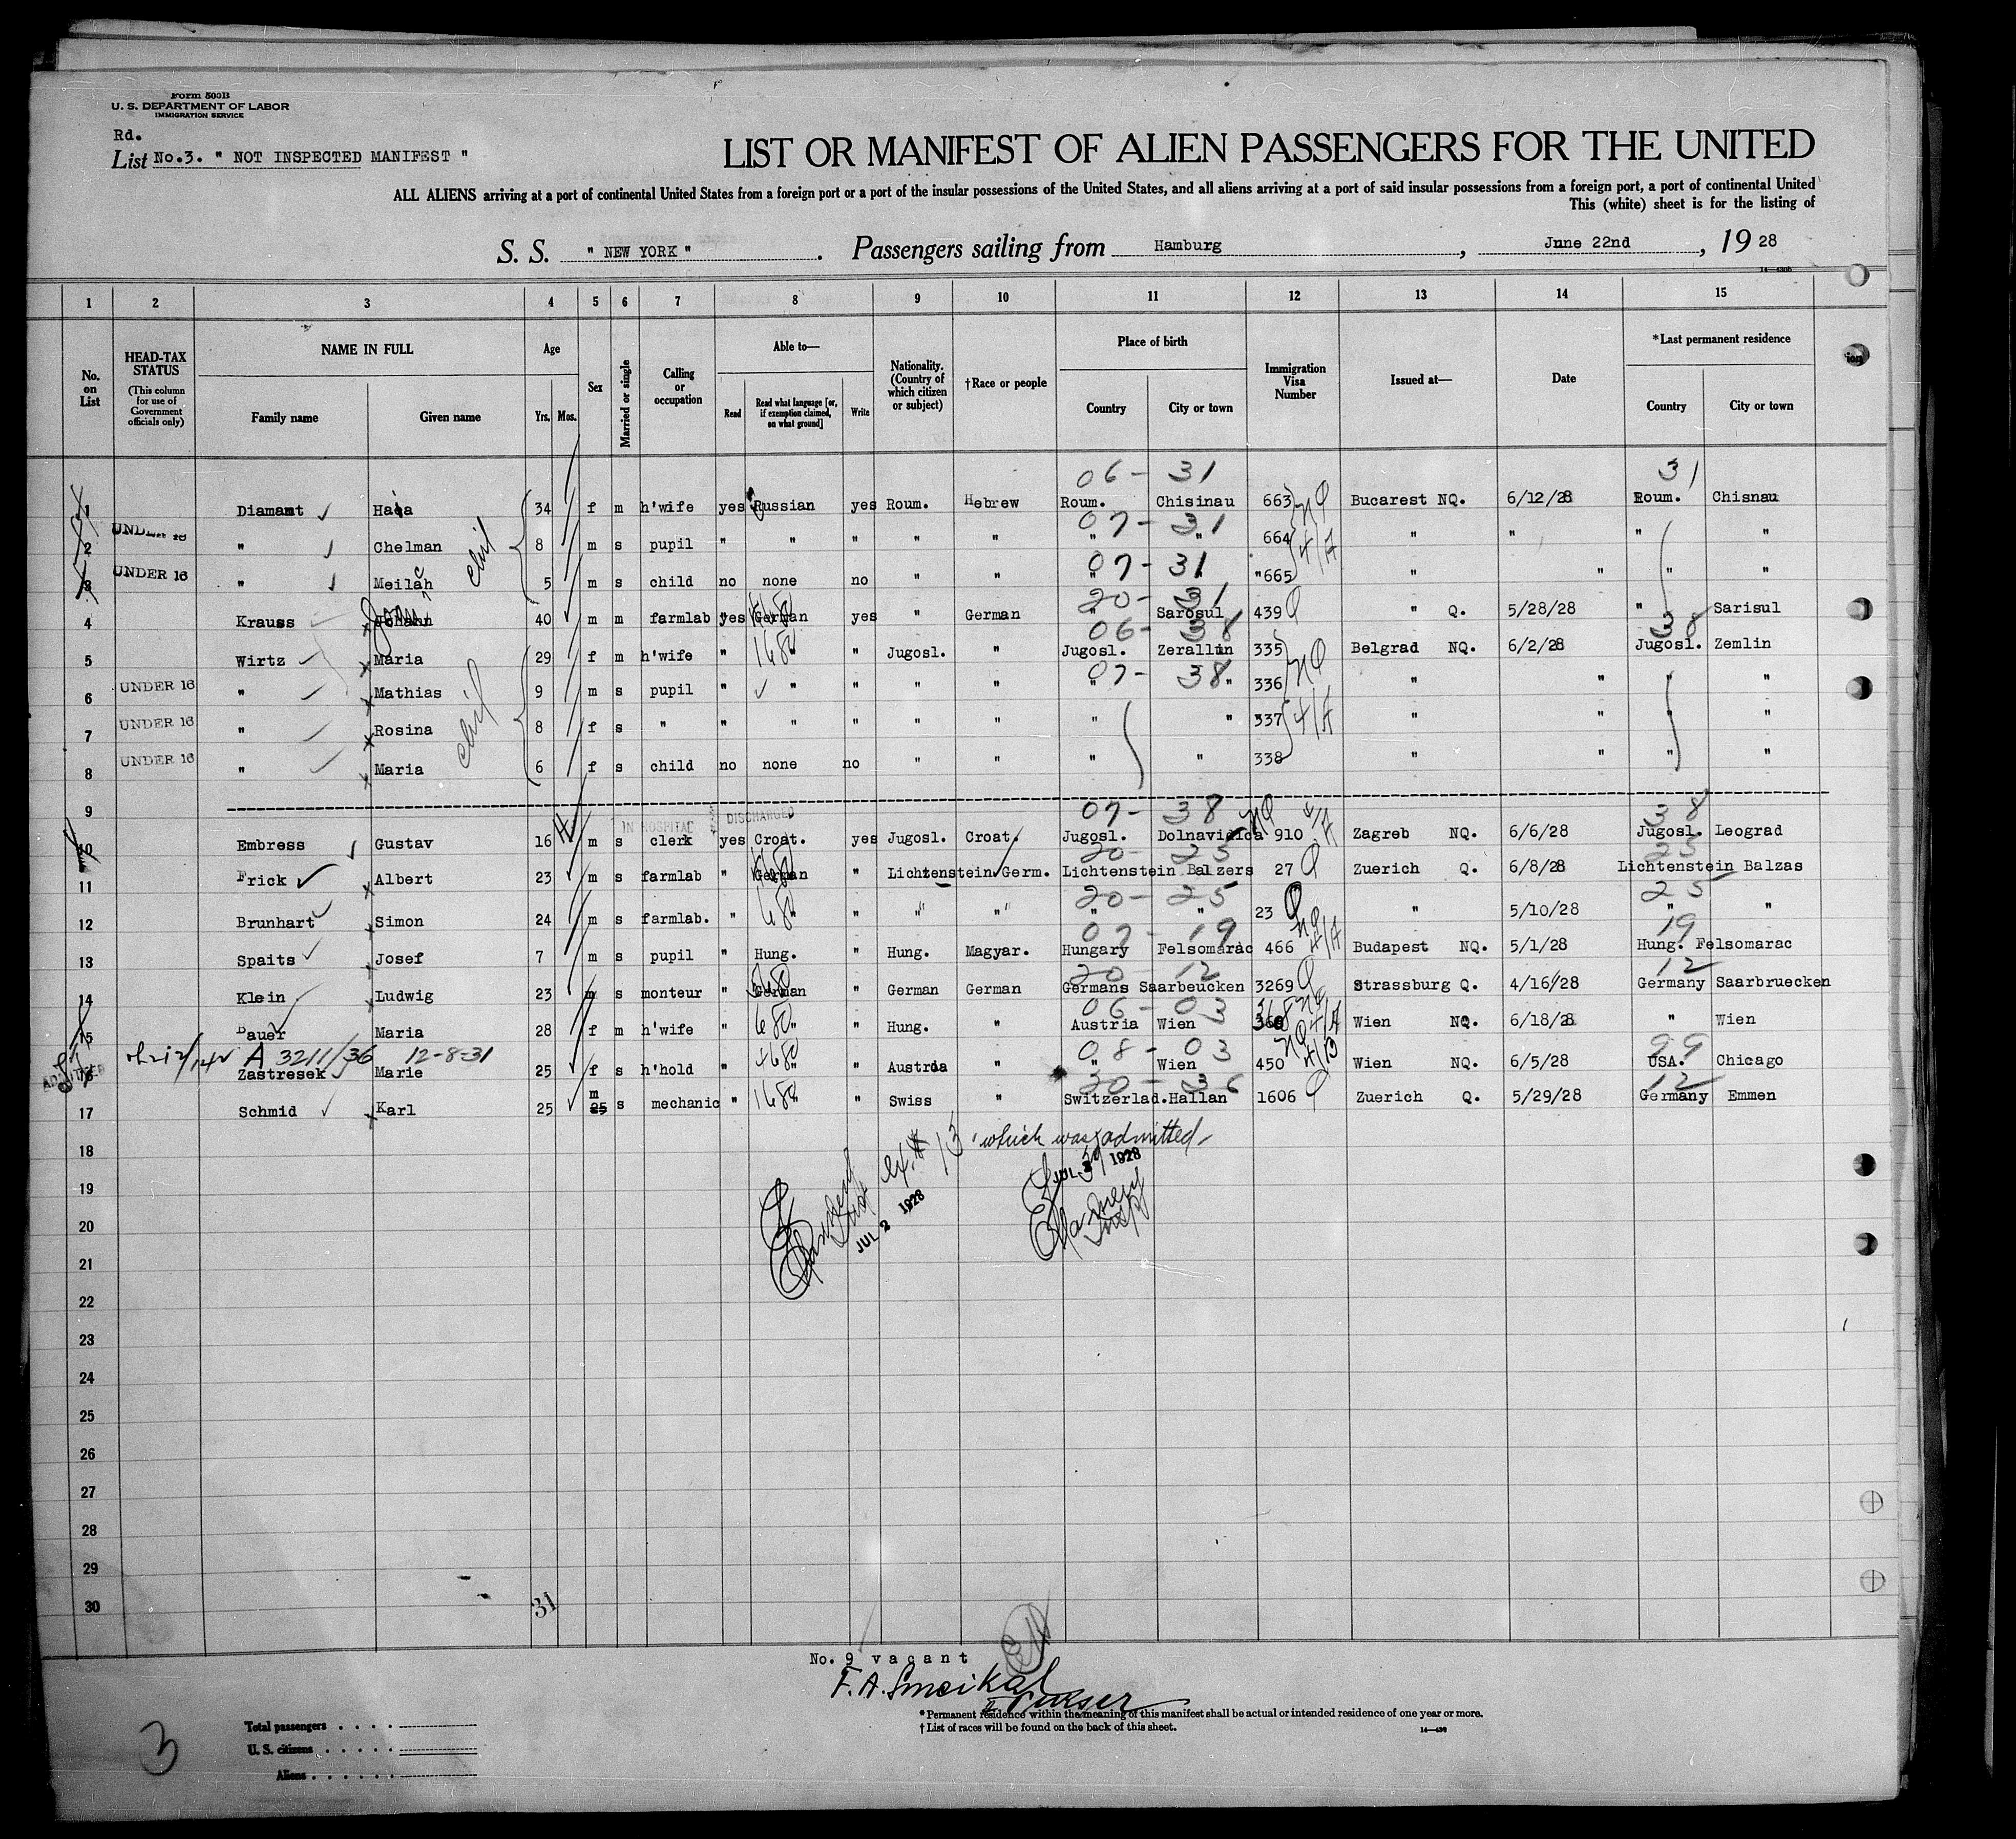 Form 500B
U. S. DEPARTMENT OF LABOR
IMMIGRATION SERVICE
Rd.
List No.3. " NOT INSPECTED MANIFEST "
LIST OR MANIFEST OF ALIEN PASSENGERS FOR THE UNITED
ALL ALIENS arriving at a port of continental United States from a foreign port or a port of the insular possessions of the United States, and all aliens arriving at a port of said insular possessions from a foreign port, a port of continental United
This (white) sheet is for the listing of
S. S. " NEW YORK " . Passengers sailing from Hamburg , June 22nd , 19 28
1 2 3 4 5 6 7 8 9 10 11 12 13 14 15
No. on List
HEAD-TAX STATUS (This column for use of Government officials only)
NAME IN FULL Family name Given name
Age Yrs. Mos.
Sex
Married or single
Calling or occupation
Able to— Read Read what language [or, if exemption claimed, on what ground] Write
Nationality. (Country of which citizen or subject)
†Race or people
Place of birth Country City or town
Immigration Visa Number
Issued at—
Date
*Last permanent residence Country City or town
06- 31 31
1 Diamant Haia 34 f m h'wife yes Russian yes Roum. Hebrew Roum. Chisinau 663 NQ Bucarest NQ. 6/12/28 Roum. Chisnau
07- 31
2 UNDER 16 " Chelman 8 m s pupil " " " " " " " 664 4/A " " " "
07- 31
3 UNDER 16 " Meilach 5 m s child no none no " " " " "665 " " " "
20- 31
4 Krauss Johann 40 m m farmlab yes German yes " German " Sarosul 439 Q " Q. 5/28/28 " Sarisul
06- 38 38
5 Wirtz Maria 29 f m h'wife " 168 " " Jugosl. " Jugosl. Zerallin 335 NQ Belgrad NQ. 6/2/28 Jugosl. Zemlin
07- 38
6 UNDER 16 " Mathias 9 m s pupil " " " " " " " 336 " " " "
7 UNDER 16 " Rosina 8 f s " " " " " " " " 337 4/A " " " "
8 UNDER 16 " Maria 6 f s child no none no " " " " 338 " " " "
9
IN HOSPITAL DISCHARGED
07- 38 NQ 4/A 38
10 Embress Gustav 16 m s clerk yes Croat. yes Jugosl. Croat. Jugosl. Dolnavidica 910 Zagreb NQ. 6/6/28 Jugosl. Leograd
20- 25 25
11 Frick Albert 23 m s farmlab " German " Lichtenstein Germ. Lichtenstein Balzers 27 Q Zuerich Q. 6/8/28 Lichtenstein Balzas
20- 25 25
12 Brunhart Simon 24 m s farmlab. " " " " " " " 23 Q " 5/10/28 " "
07- 19 NQ 4/A 19
13 Spaits Josef 7 m s pupil " Hung. " Hung. Magyar. Hungary Felsomarac 466 Budapest NQ. 5/1/28 Hung. Felsomarac
20- 12 12
14 Klein Ludwig 23 m s monteur " German " German German Germans Saarbeucken 3269 Q Strassburg Q. 4/16/28 Germany Saarbruecken
06- 03
15 Bauer Maria 28 f m h'wife " " " Hung. " Austria Wien 368 NQ 4/A Wien NQ. 6/18/28 " Wien
A 3211/36 12-8-31
08- 03 NQ 4/B 99
16 ADMITTED Zastresek Marie 25 f s h'hold " " " Austria " " Wien 450 Wien NQ. 6/5/28 USA. Chicago
20- 36 12
17 Schmid Karl 25 m 25 s mechanic " 168 " " Swiss " Switzerlad. Hallan 1606 Q Zuerich Q. 5/29/28 Germany Emmen
18
19
20
21
22
23
24
25
26
27
28
29
30
13 which was admitted
JUL 2 1928
JUL 3 1928
31
No. 9 vacant
F. A. Smeikal
II Purser
3
Total passengers
U. S. citizens
Aliens
*Permanent residence within the meaning of this manifest shall be actual or intended residence of one year or more.
†List of races will be found on the back of this sheet.
14—430